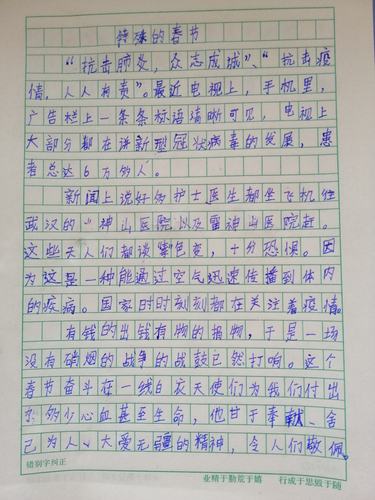 特殊的春节
“抗击肺炎,众志成城”、“抗击疫
情,人人有责”。最近电视上,手机里,
广告栏上一条条标语清晰可见,电视上
大部分都在讲新型冠状病毒的发展,患
者总达6万多人。
新闻上说好多护士医生都坐飞机往
武汉的“神山医院以及雷神山医院赶。
这些天人们都谈紫色变,十分恐惧。因
为这是一种能通过空气迅速传播到体内
的疾病。国家时时刻刻都在关注着疫情。
有钱的出钱有物的捐物,于是一场
没有硝烟的战争的战鼓已然打响。这个
春节奋斗在一线白衣天使们为我们付出
多少心血甚至生命,他甘于奉献、舍
己为人、大爱无疆的精神,令人们敬佩。
错别字纠正
业精于勤荒于嬉 行成于思毁于随